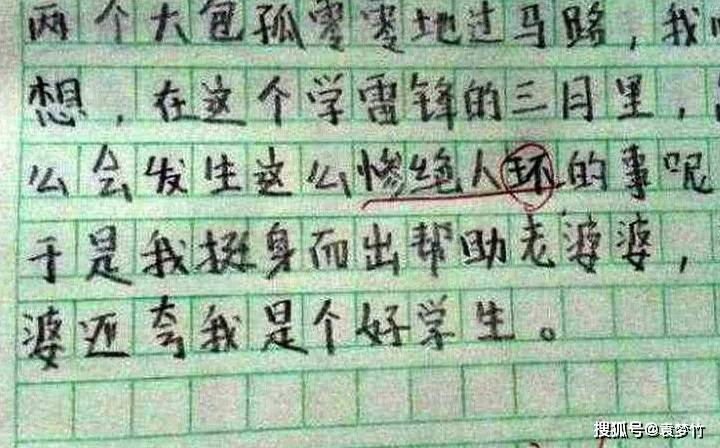 两个大包孤零零地过马路，我
想，在这个学雷锋的三月里，
么会发生这么惨绝人环的事呢
于是我挺身而出帮助老婆婆，
婆还夸我是个好学生。
搜狐号@袁梦竹